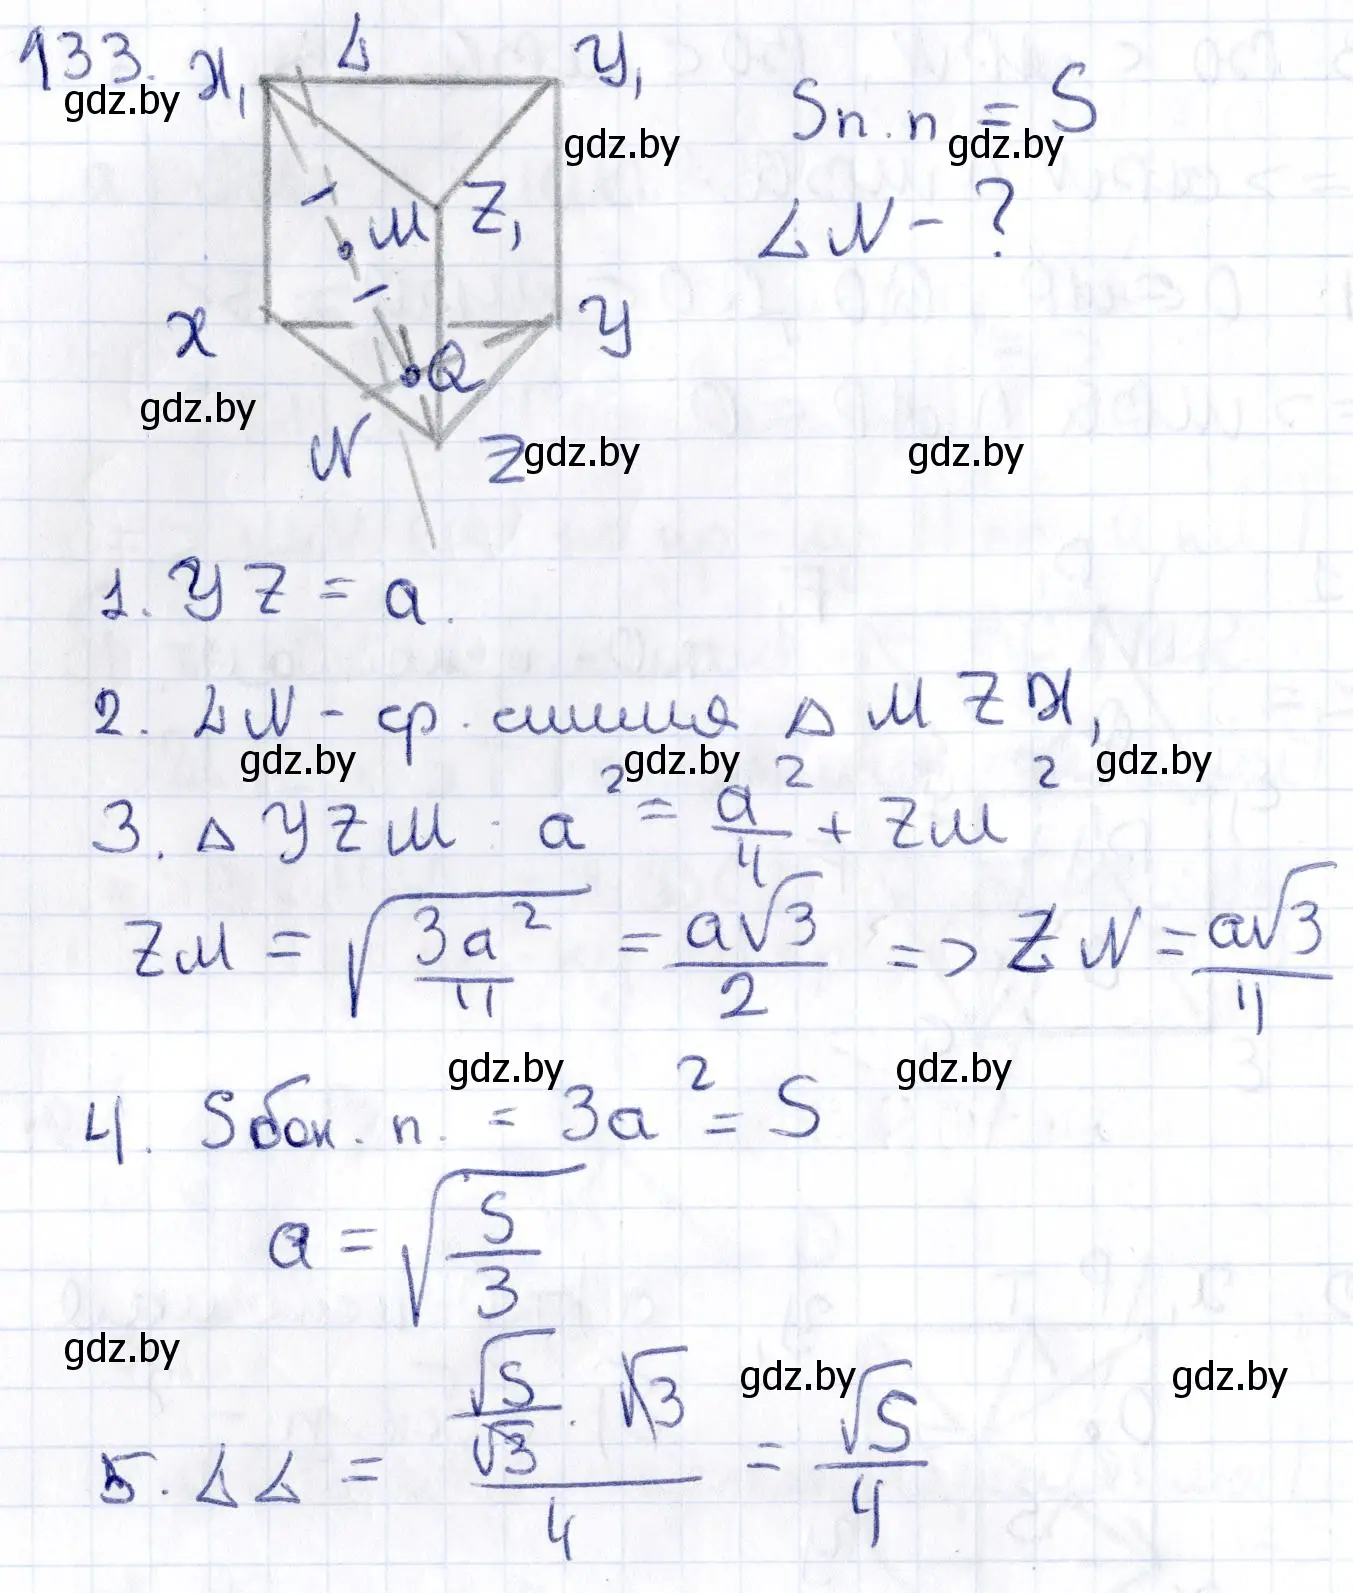 133. X₁ L Y₁
gdz.by
Sп.п = S
gdz.by gdz.by
M Z₁
LN - ?
X Y
Q
gdz.by
N Z
gdz.by gdz.by
1. YZ = a.
2. LN - ср. линия △ MZX₁
gdz.by gdz.by gdz.by
3. △ YZM : a² = a²/4 + ZM²
ZM = √(3a²/4) = a√3/2 => ZN = a√3/4
gdz.by gdz.by
4. Sбок.п. = 3a² = S
a = √(S/3)
gdz.by gdz.by gdz.by
5. LL = (√S/√3 · √3)/4 = √S/4